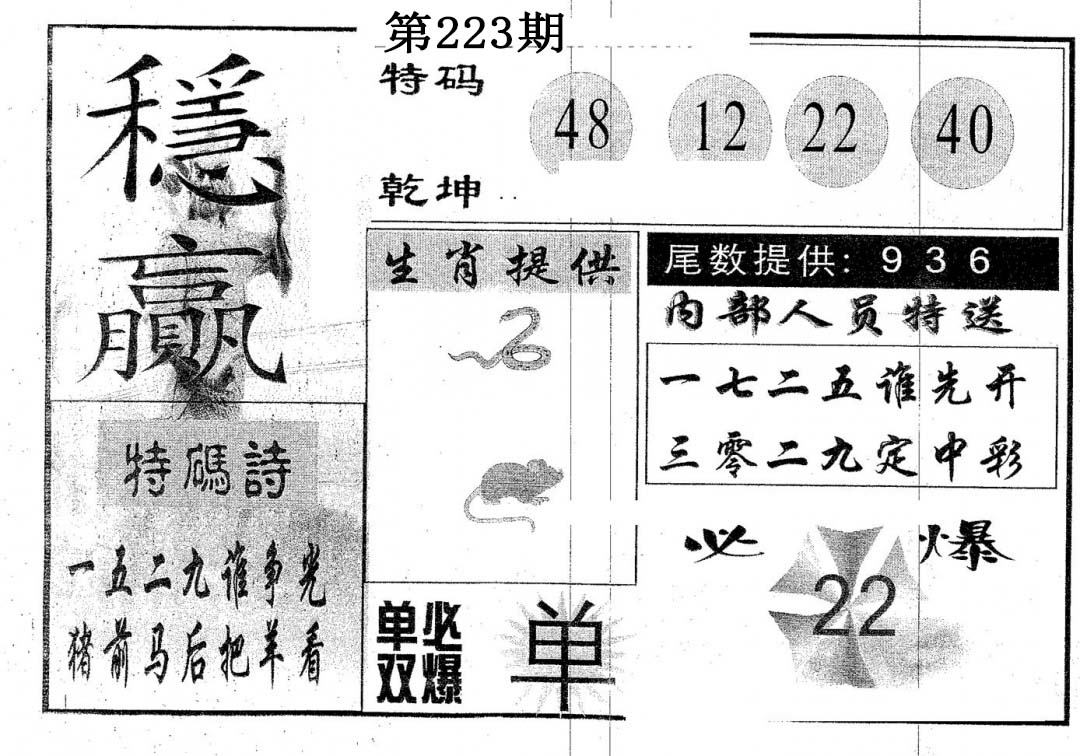 第223期
穩贏
特码
48 12 22 40
乾坤
生肖提供
尾数提供: 9 3 6
内部人员特送
一七二五谁先开
三零二九定中彩
特碼詩
一五二九谁争光
猪前马后把羊看
单双
必爆
单
必爆
22